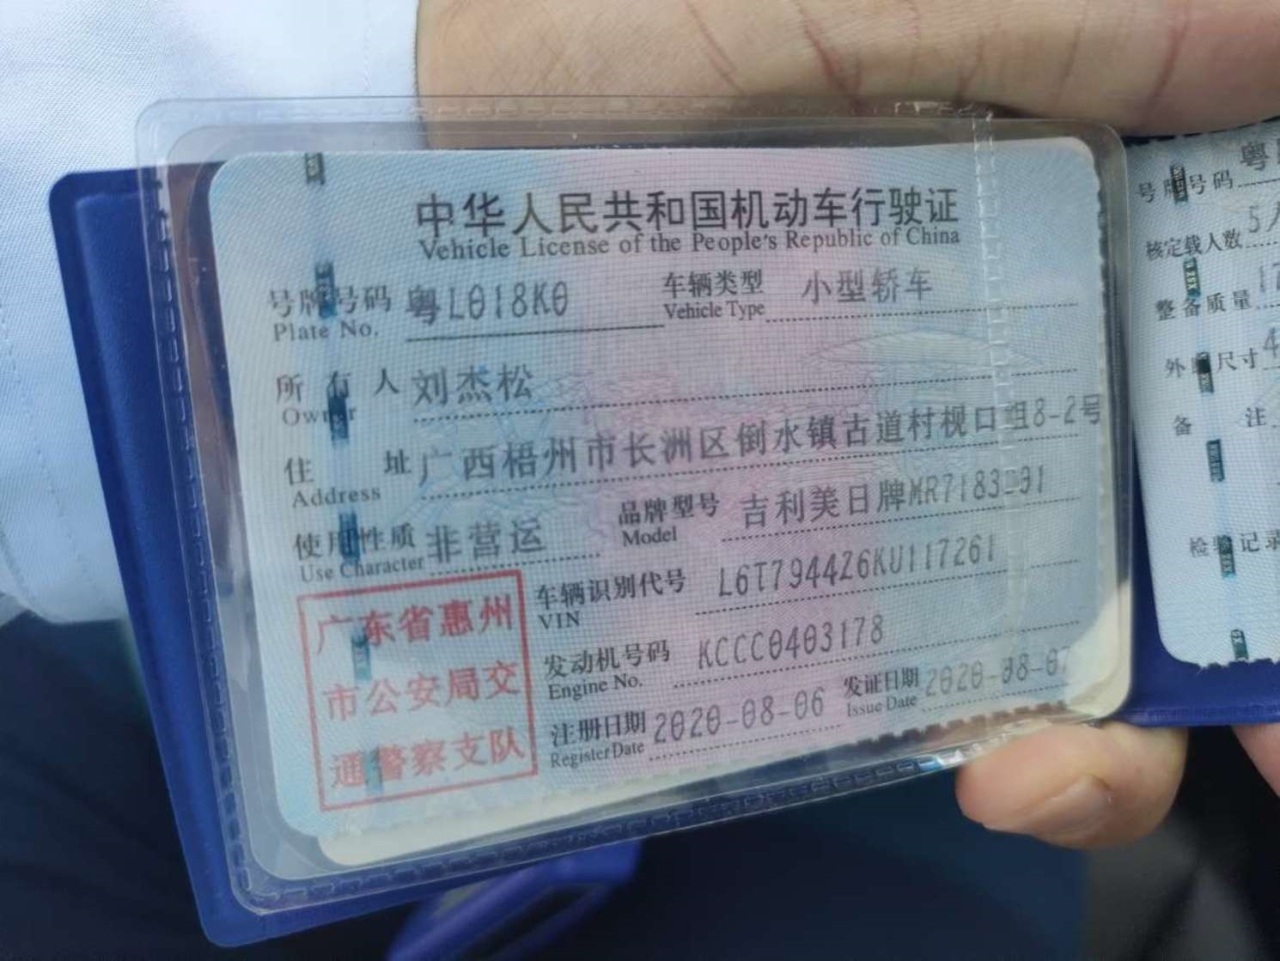 中华人民共和国机动车行驶证
Vehicle License of the People's Republic of China
号牌号码 粤L018K0 车辆类型 小型轿车
Plate No. Vehicle Type
所有人 刘杰松
Owner
住址 广西梧州市长洲区倒水镇古道村枧口组8-2号
Address
使用性质 非营运 品牌型号 吉利美日牌MR7183D01
Use Character Model
车辆识别代号 L6T7944Z6KU117261
VIN
发动机号码 KCCC0403178
Engine No.
注册日期 2020-08-06 发证日期 2020-08-07
Register Date Issue Date
广东省惠州
市公安局交
通警察支队
号牌号码 粤
核定载人数 5人
整备质量 17
外廓尺寸 4
备注
检验记录